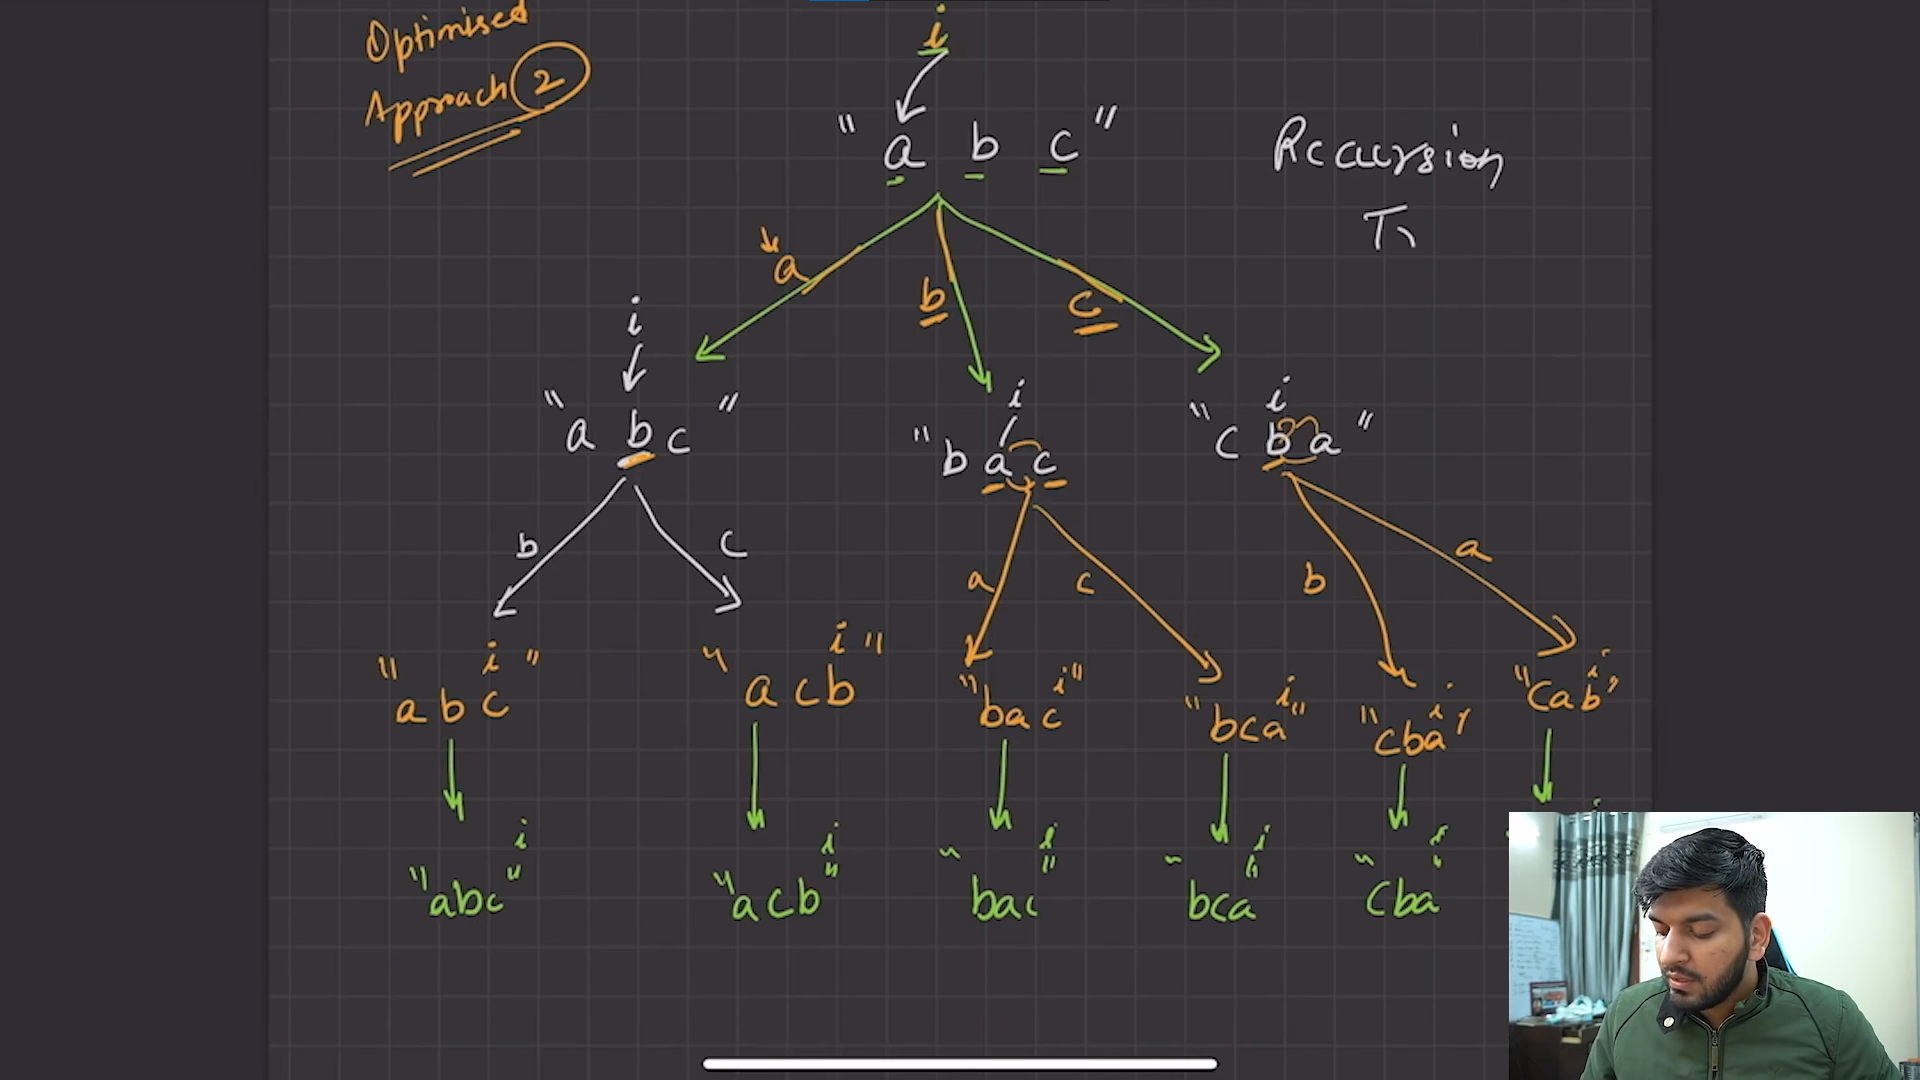 Optimised
Approach 2
i
"a b c"
Recursion
a
b
c
i
"a b c"
i
"b a c"
i
"c b a"
b
c
a
c
b
a
i
"a b c"
i
"a c b"
i
"bac"
i
"bca"
i
"cba"
i
"cab"
i
"abc"
i
"acb"
i
"bac"
i
"bca"
i
"cba"